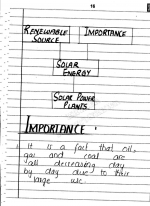 16
RENEWABLE SOURCE
IMPORTANCE
SOLAR ENERGY
SOLAR POWER PLANTS
IMPORTANCE :
It is a fact that oil,
gas and coal are
all decreasing day
by day due to their
large use.